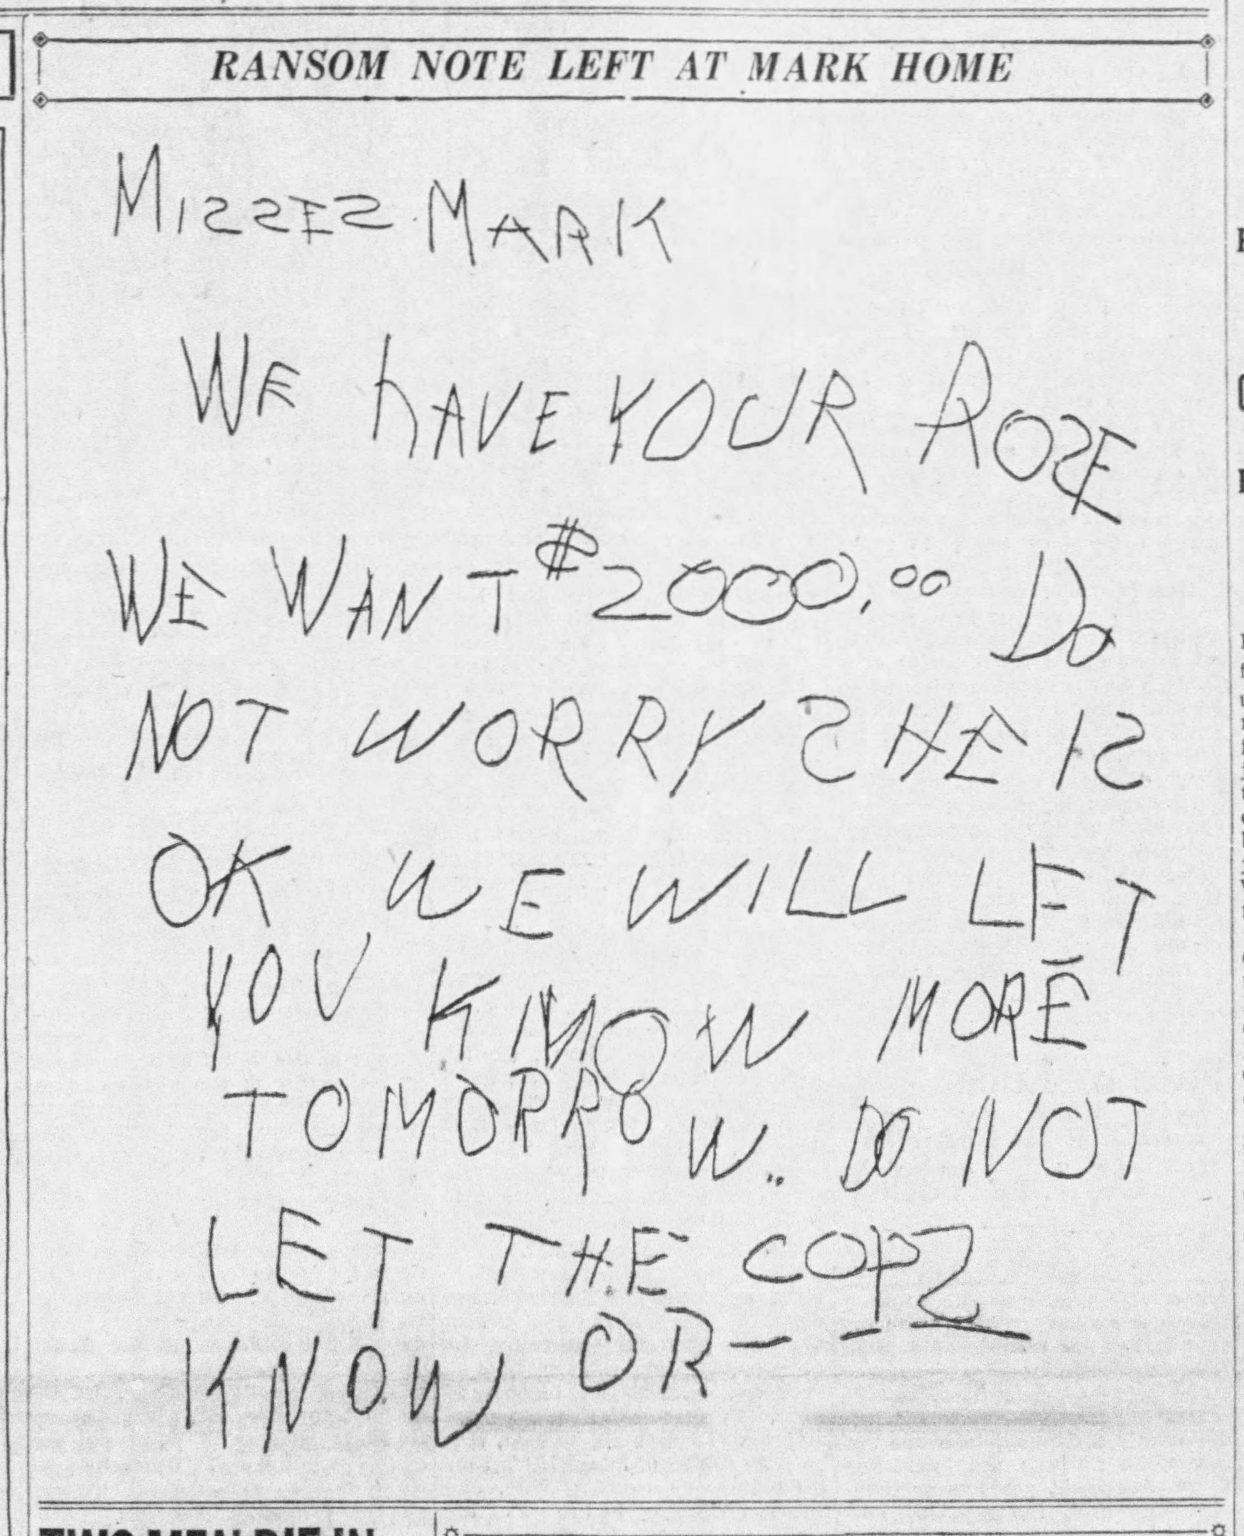 RANSOM NOTE LEFT AT MARK HOME
MISSES MARK
WE HAVE YOUR ROSE
WE WANT $2000.00 DO
NOT WORRY SHE IS
OK WE WILL LET
YOU KNOW MORE
TOMORROW.. DO NOT
LET THE COPS
KNOW OR - - —